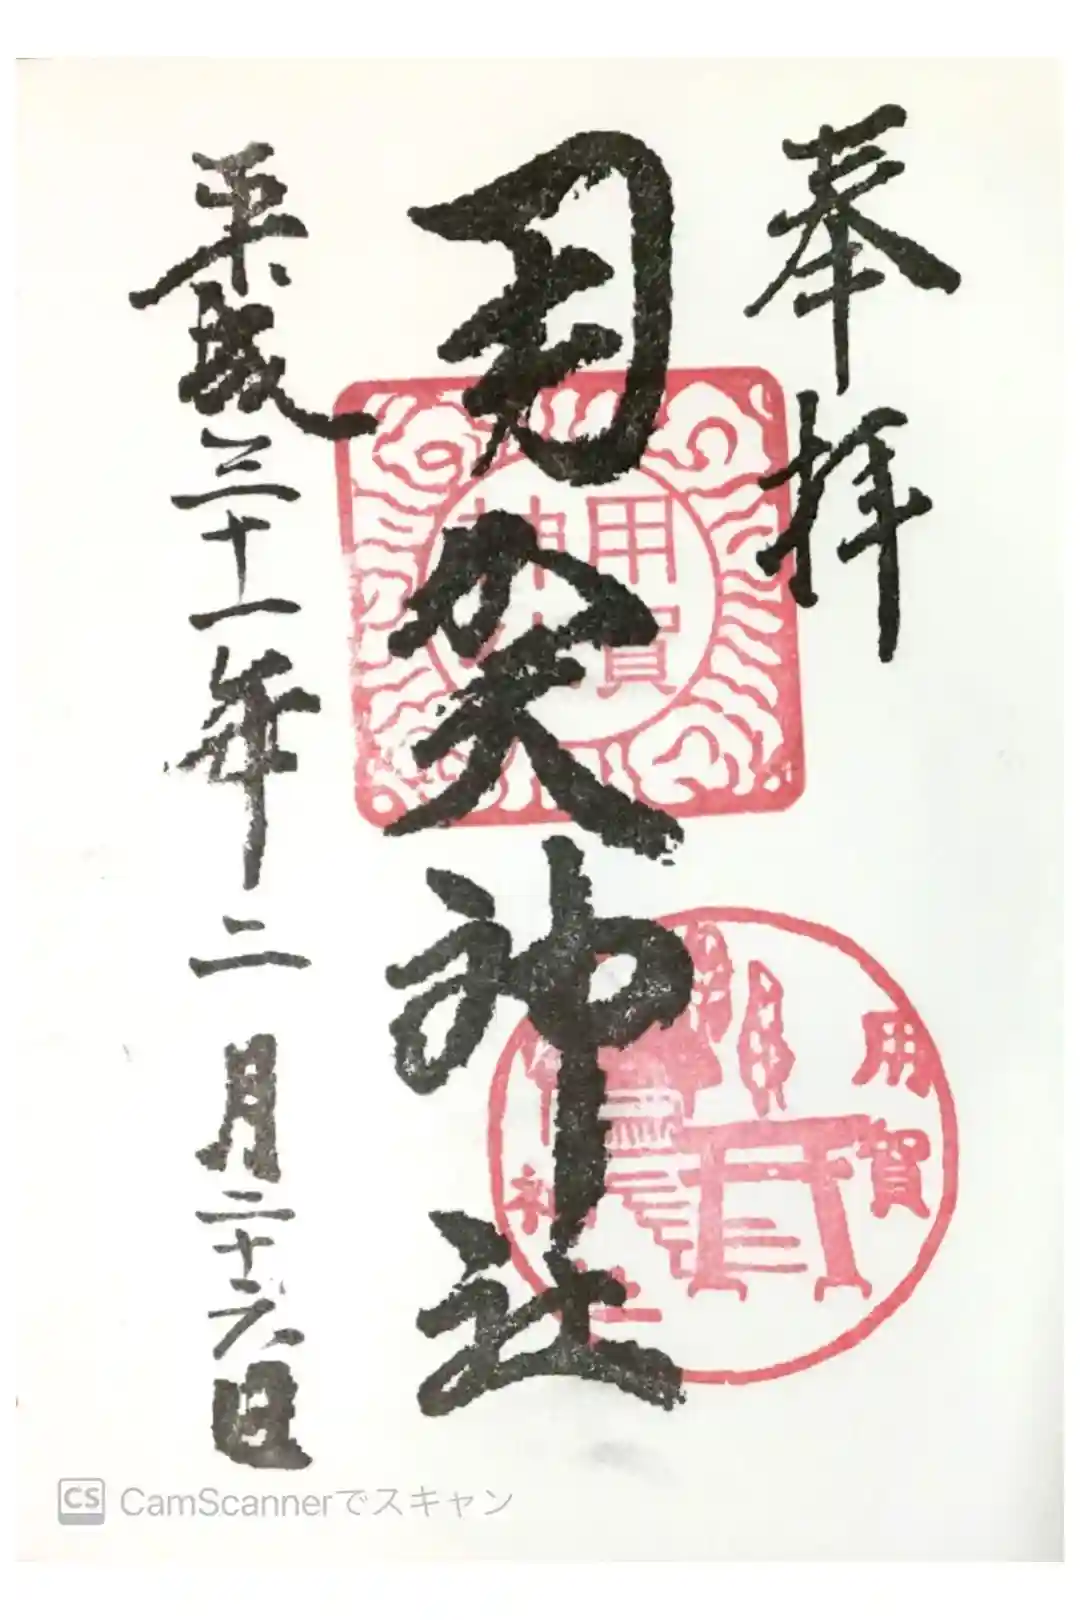 奉拝
用賀神社
平成三十一年二月二十六日
用賀神社
用賀神社
CS CamScannerでスキャン